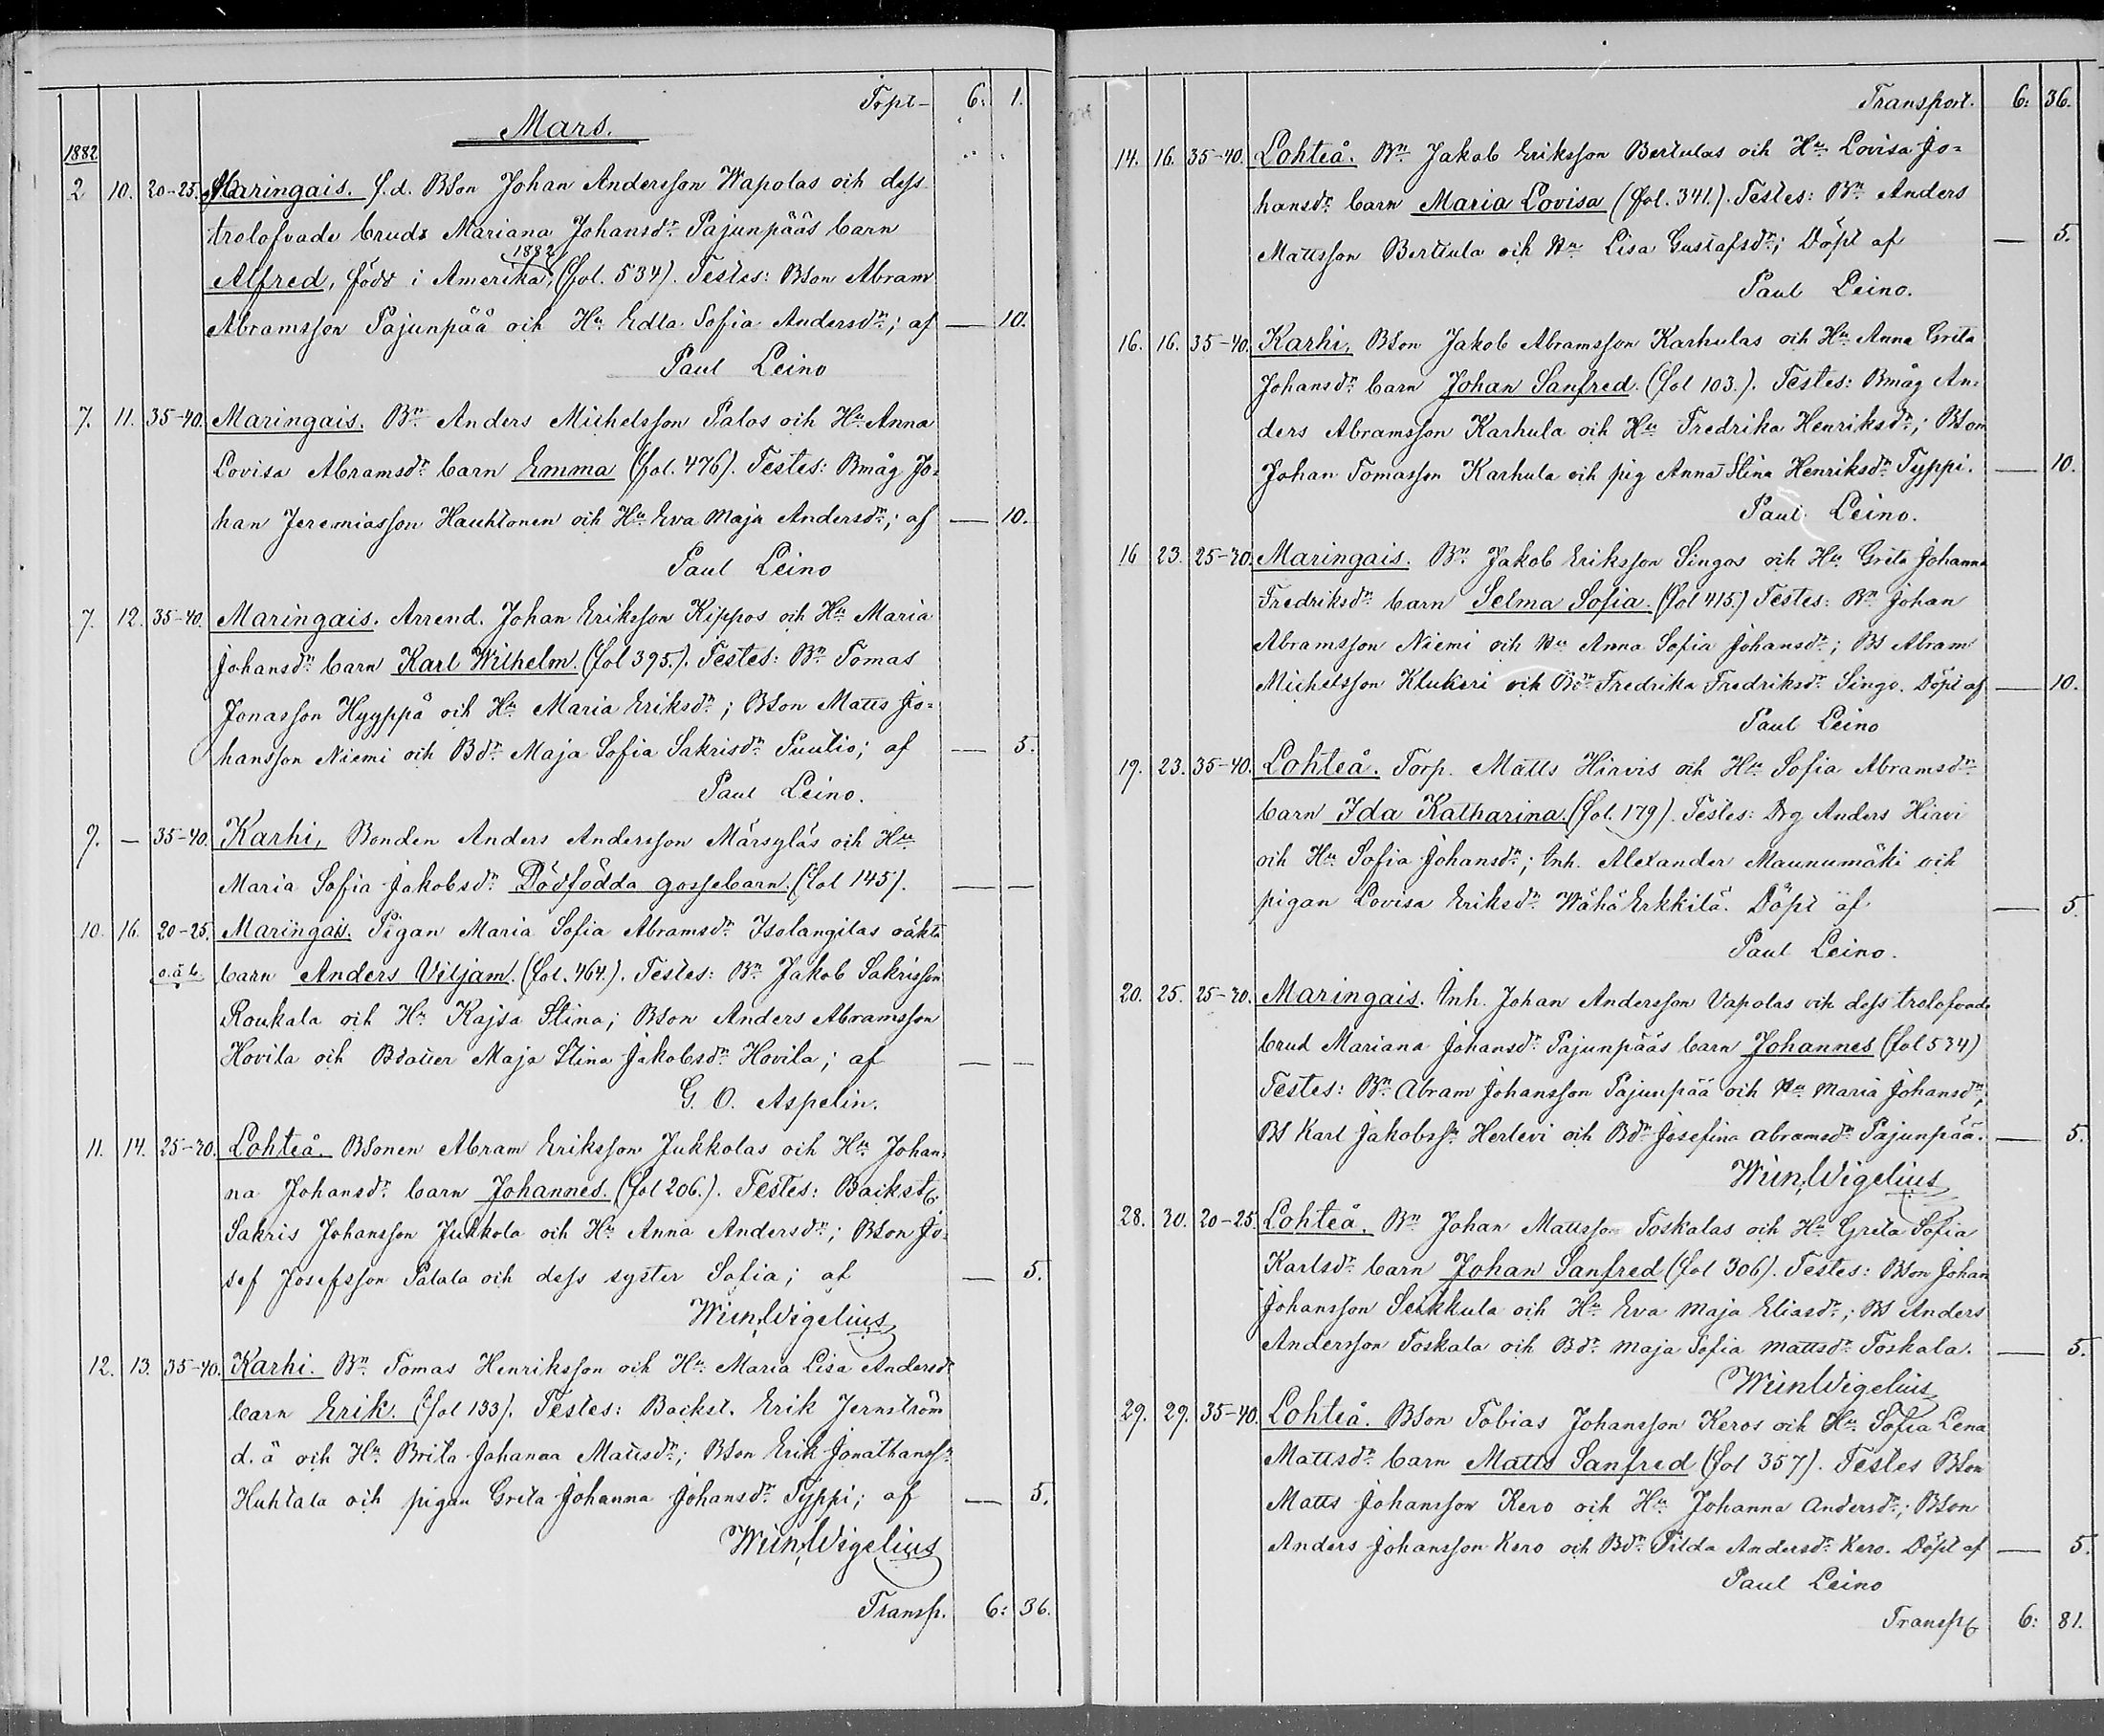 Trpt- 6: 1.
Mars.
1882
2 10. 20-25. Maringais. f.d. BSon Johan Andersson Wapolas och dess
trolofvade bruds Mariana Johansdr Pajunpääs barn
1882
Alfred, född i Amerika, (fol. 534). Testes: BSon Abram
Abramsson Pajunpää och Hu Edla Sofia Andersdr; af — 10.
Paul Leino
7. 11. 35-40. Maringais. Bn Anders Michelsson Palos och Hu Anna
Lovisa Abramsdr barn Emma (fol. 476). Testes: Bmåg Jo-
han Jeremiasson Hauhtonen och Hu Eva Maja Andersdr; af — 10.
Paul Leino
7. 12. 35-40. Maringais. Arrend. Johan Eriksson Kippos och Hu Maria
Johansdr barn Karl Wilhelm (fol 395.). Testes: Bn Tomas
Jonasson Hyyppä och Hu Maria Eriksdr; BSon Matts Jo-
hansson Niemi och Bdr Maja Sofia Sakrisdr Puutio; af — 5.
Paul Leino.
9. — 35-40. Karhi, Bonden Anders Andersson Märsyläs och Hu
Maria Sofia Jakobsdr Dödfödda gossebarn. (fol 145). — —
10. 16. 20-25. Maringais. Pigan Maria Sofia Abramsdr Isolangilas oäkta
o.ä.b. barn Anders Viljam. (fol. 464.). Testes: Bn Jakob Sakrisson
Roukala och Hu Kajsa Stina; BSon Anders Abramsson
Hovila och Bdotter Maja Stina Jakobsdr Hovila; af — —
G. O. Aspelin.
11. 14. 25-30. Lohteå. BSonen Abram Eriksson Jukkolas och Hu Johan-
na Johansdr barn Johannes. (fol 206.). Testes: Backst.
Sakris Johansson Jukkola och Hu Anna Andersdr; BSon Jo-
sef Josefsson Palala och dess syster Sofia; af — 5.
Wm Wigelius
12. 13. 35-40. Karhi. Bn Tomas Henriksson och Hu Maria Lisa Andersdr
barn Erik. (fol 133). Testes: Backst. Erik Jernström
d.ä och Hu Brita Johanna Mattsdr; BSon Erik Jonathanssn
Huhtala och pigan Greta Johanna Johansdr Typpi; af — 5.
Wm Wigelius
Transp. 6: 36.
Transport. 6: 36.
14. 16. 35-40. Lohteå. Bn Jakob Eriksson Bertulas och Hu Lovisa Jo-
hansdr barn Maria Lovisa (fol. 341.). Testes: Bn Anders
Mattsson Bertula och Hu Lisa Gustafsdr; Döpt af — 5.
Paul Leino.
16. 16. 35-40. Karhi, BSon Jakob Abramsson Karhulas och Hu Anna Greta
Johansdr barn Johan Sanfred. (fol 103.). Testes: Bmåg An-
ders Abramsson Karhula och Hu Fredrika Henriksdr; BSon
Johan Tomasson Karhula och pig Anna Stina Henriksdr Typpi. — 10.
Paul Leino.
16 23. 25-30. Maringais. Bn Jakob Eriksson Singos och Hu Greta Johanna
Fredriksdr barn Selma Sofia. (fol 415.) Testes: Bn Johan
Abramsson Niemi och Hu Anna Sofia Johansdr; BS Abram
Michelsson Klukeri och Bdr Fredrika Fredriksdr Singo. Döpt af — 10.
Paul Leino
19. 23. 35-40. Lohteå. Torp. Matts Hirvis och Hu Sofia Abramsdr
barn Ida Katharina. (fol. 179). Testes: Drg Anders Hirvi
och Hu Sofia Johansdr; Inh. Alexander Maunumäki och
pigan Lovisa Eriksdr WähäErkkilä. Döpt af — 5.
Paul Leino.
20. 25. 25-30. Maringais. Inh. Johan Andersson Vapolas och dess trolofvade
brud Mariana Johansdr Pajunpääs barn Johannes (fol 534)
Testes: Bn Abram Johansson Pajunpää och Hu Maria Johansdr;
BS Karl Jakobssn Herlevi och Bdr Josefina Abramsdr Pajunpää. — 5.
Wm Wigelius
28. 30. 20-25. Lohteå. Bn Johan Mattsson Toskalas och Hu Greta Sofia
Karlsdr barn Johan Sanfred (fol 306). Testes: BSon Johan
Johansson Seikkula och Hu Eva Maja Eliasdr; BS Anders
Andersson Toskala och Bdr Maja Sofia Mattsdr Toskala. — 5.
Wm Wigelius
29. 29. 35-40. Lohteå. BSon Tobias Johansson Keros och Hu Sofia Lena
Mattsdr barn Matts Sanfred (fol 357). Testes BSon
Matts Johansson Kero och Hu Johanna Andersdr; BSon
Anders Johansson Kero och Bdr Tilda Andersdr Kero. Döpt af — 5.
Paul Leino
Transp. 6: 81.